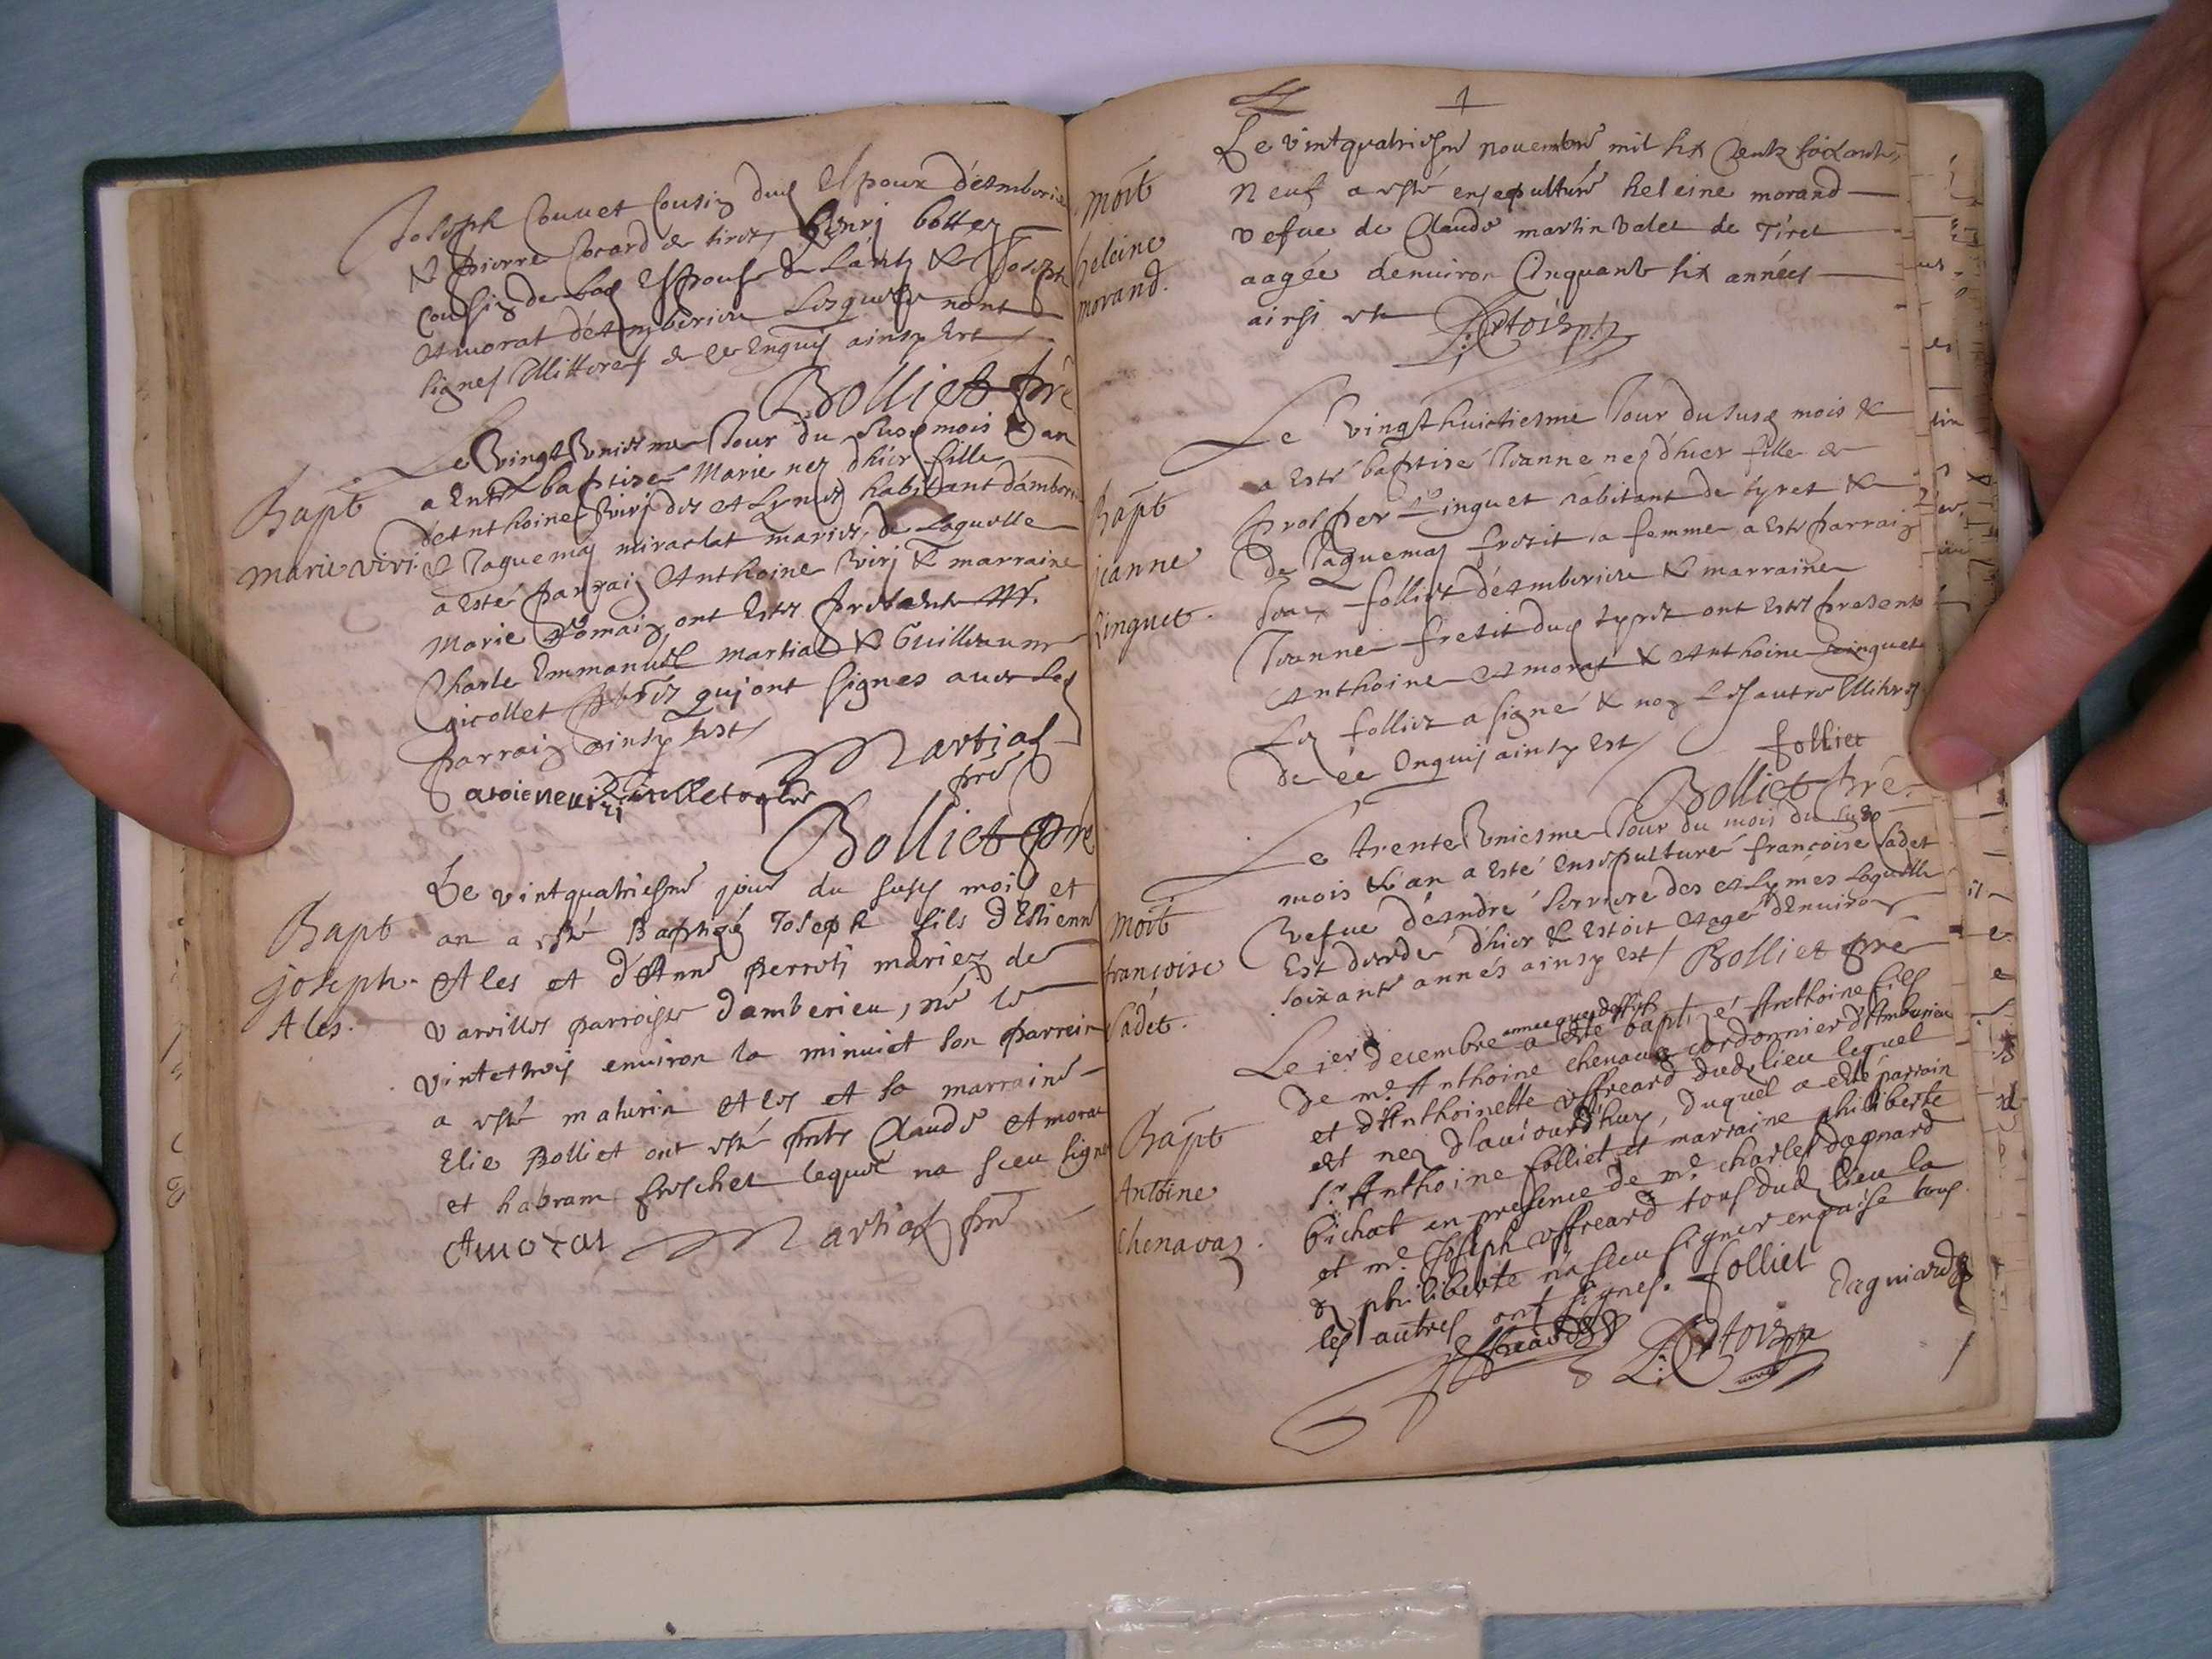 Joseph Couuet Cousin dud Espoux d'Amberieu
& pierre Cocard de tiret, henrj bottex
Cousin de lad Espouse de & Joseph
Amorat d'Amberieu Lesquels nont
signes Illitterés de ce Enquis ainsy Est
Bolliet pre
Bapt
marie vivi.
Le vingt Uniesme Jour du susd mois & an
a Esté baptisé Marie nez d'hier fille
d'Anthoine Vivj des Alymes habitant d'amberieu
& Jaquemaz miraclat mariez, de Laquelle
a Esté parrain Anthoine Vivj & marraine
Marie Romain ont Estes presents Mr.
Charle Emmanuel martial & Guilleaume
gicollet qui ont signes auec led
parrain ainsy Est
Martial
pre
Bolliet pre
Bapt
joseph
Ales.
Le vintquatriesme jour du susd mois et
an a esté Baptizé Joseph fils d'Estienne
Ales et d'Anne perroti mariez de
varvilles parroisse damberieu, né le
vintetrois environ la minuict son parrein
a esté maturin Ales et sa marraine
Elie Bolliet ont esté pnts Claude Amorat
et habram froschet lequel na sceu signer
Amorat Martial pre
mort
heleine
morand.
Le vintquatriesme nouembre mil six Centz soixante
Neuf a esté ensepulturé heleine morand
vefue de Claude martin valet de Tiret
aagée denuiron Cinquante six années
ainsi est
Bapt
jeanne
Linguet.
Le vingthuictiesme Jour du susd mois &
a Esté baptisé Jeanne nez d'hier fille de
prosper Linguet habitant de tyret &
de Jaquemaz frezit sa femme a Esté parrain
Jean folliet d'Amberieu & marraine
Jeanne frezit dud tyret ont Estes presents
Anthoine Amorat & Anthoine Linguet
Led folliet a signé & non Les autres Illiteres
de ce Enquis ainsy Est
folliet
Bolliet pre
mort
françoise
Cadet.
Le trente Uniesme Jour du mois du susd
mois & an a Esté Ensepulturé françoise Cadet
Vefue d'Andre des Alymes Laquelle
Est decedé d'hier & Estoit Aage d'Enuiron
soixante annés ainsy Est Bolliet pre
Bapt
Antoine
Chenavaz.
Le ier decembre annee que dessus a esté baptizé Anthoine fils
de me Anthoine chenavaz cordonnier d'Amberieu
et d'Anthoinette uffreard dud lieu lequel
est nez d'aujourdhuy, duquel a esté parrain
sr Anthoine folliet et marraine philiberte
bichat en presence de me charles dagnard
et me Joseph uffreard tous dud lieu la
d philiberte n'a sceu signer enquise tous
les autres ont signes. folliet